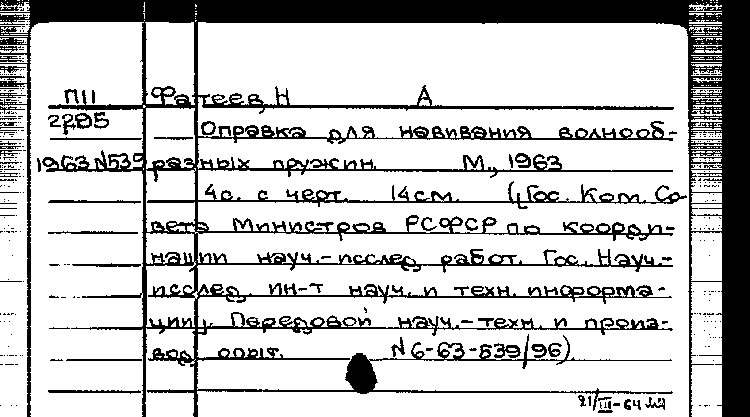 П11 Фатеев, Н А
2785 Оправка для навивания волнооб-
1963 N539 разных пружин. М., 1963
4с. с черт. 14см. (Гос. Ком. Со-
вета Министров РСФСР по коорди-
нации науч.-исслед. работ. Гос. Науч.-
исслед. ин-т науч. и техн. информа-
ции. Передовой науч.-техн. и произ-
вод. опыт. N 6-63-539/96).
21/III-64